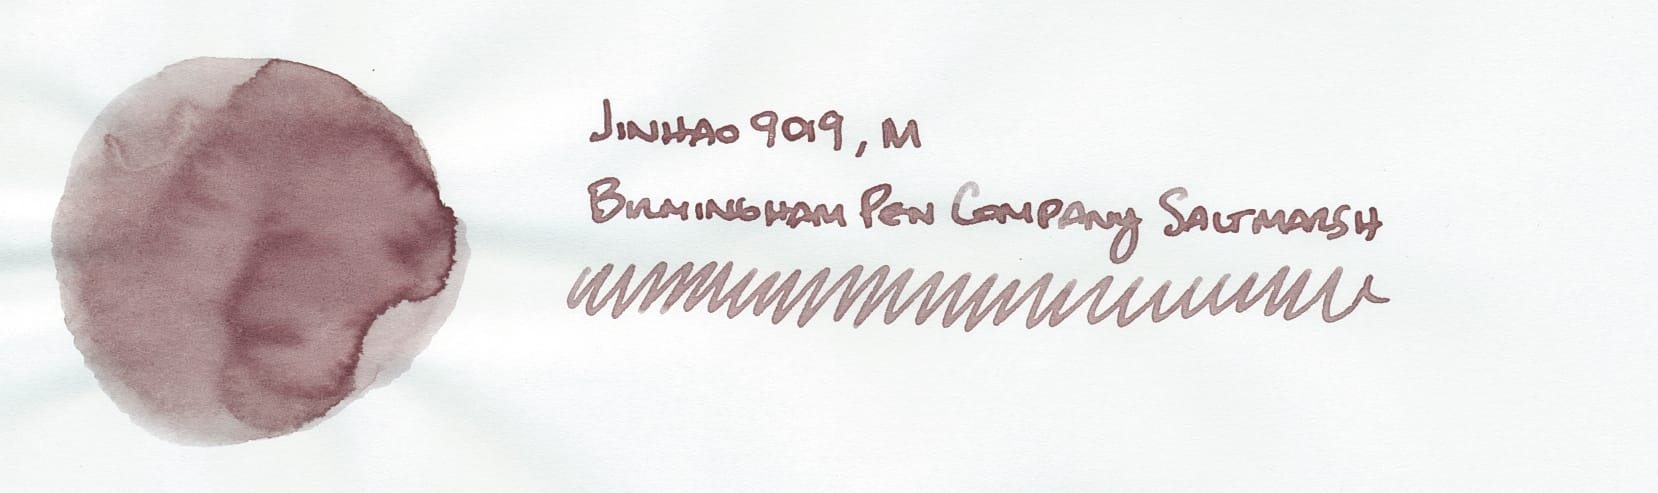 Jinhao 9019, M
Birmingham Pen Company Saltmarsh